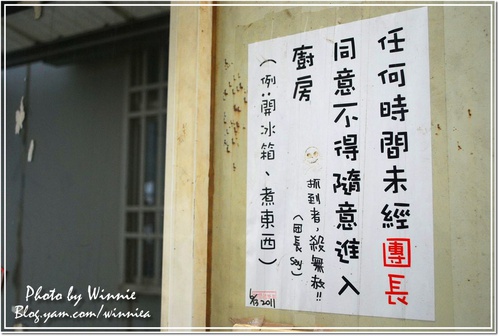 任何時間未經團長
同意不得隨意進入
廚房
抓到者，殺無赦!!
（団長 say）
（例:開冰箱、煮東西）
2011
Photo by Winnie
Blog.yam.com/winniea